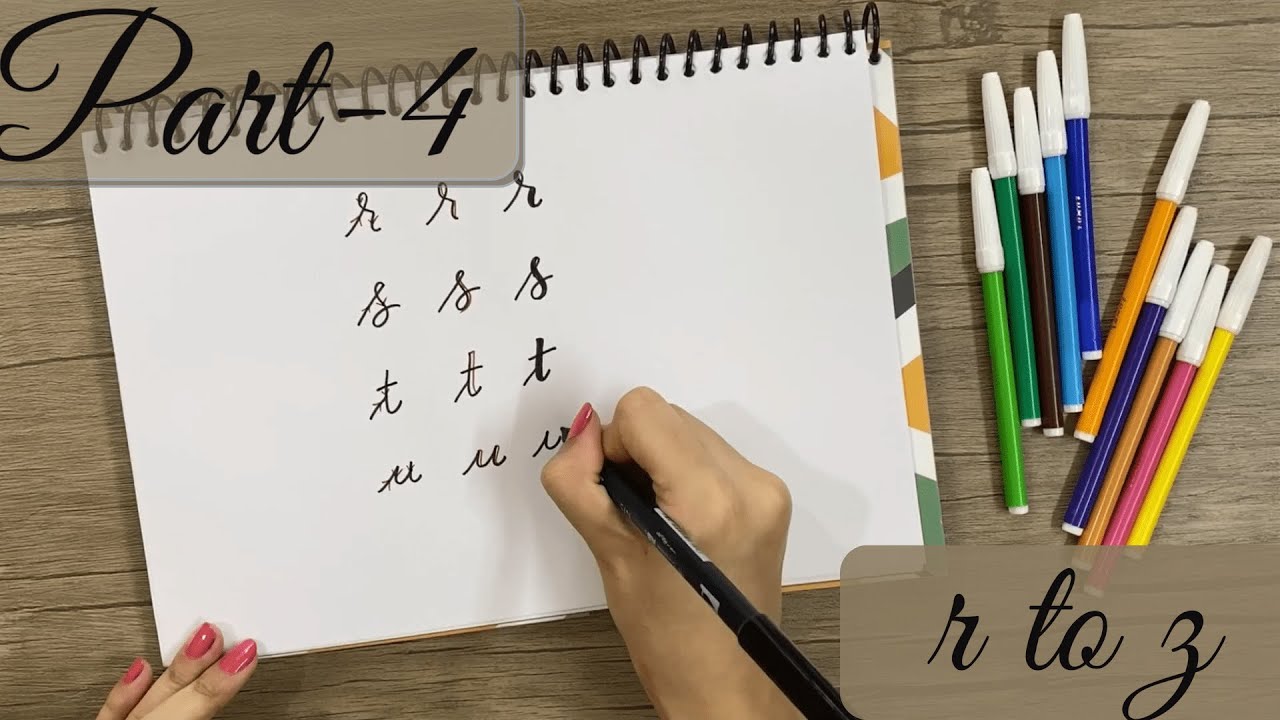 Part-4
r r r
s s s
t t t
u u u
r to z